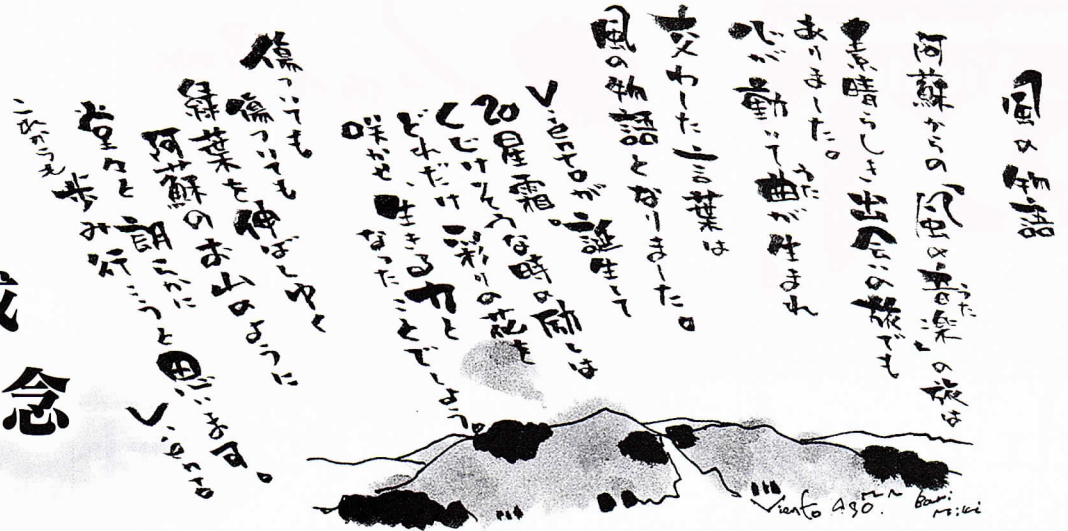 風の物語
阿蘇からの「風の音楽」の旅は
うた
素晴らしき出会いの旅でも
ありました。
心が動いて曲が生まれ
うた
交わした言葉は
風の物語となりました。
Vientoが誕生して
20星霜。
くじけそうな時の励しは
どれだけ彩りの花を
咲かせ、生きる力と
なったことでしょう。
傷ついても
傷ついても
緑葉を伸ばしゆく
阿蘇のお山のように
堂々と朗らかに
これからも歩み行こうと思います。
Viento
念
Viento ASO.